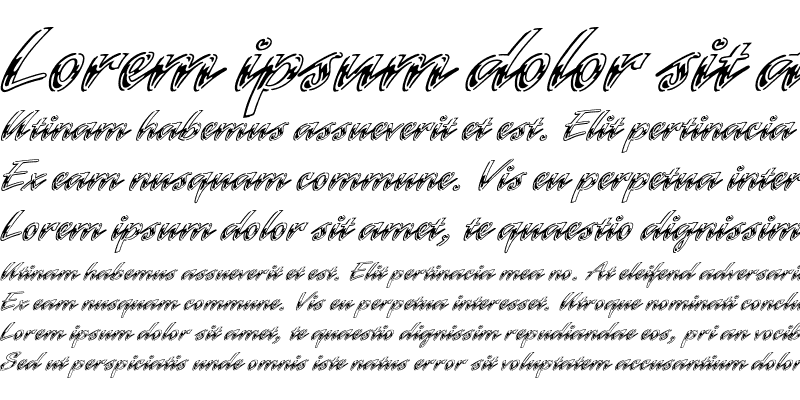 Lorem ipsum dolor sit a
Utinam habemus assueverit et est. Elit pertinacia
Ex eam nusquam commune. Vis eu perpetua inter
Lorem ipsum dolor sit amet, te quaestio dignissim
Utinam habemus assueverit et est. Elit pertinacia mea no. At eleifend adversari
Ex eam nusquam commune. Vis eu perpetua interesset. Utroque nominati conclu
Lorem ipsum dolor sit amet, te quaestio dignissim repudiandae eos, pri an vocib
Sed ut perspiciatis unde omnis iste natus error sit voluptatem accusantium dolor